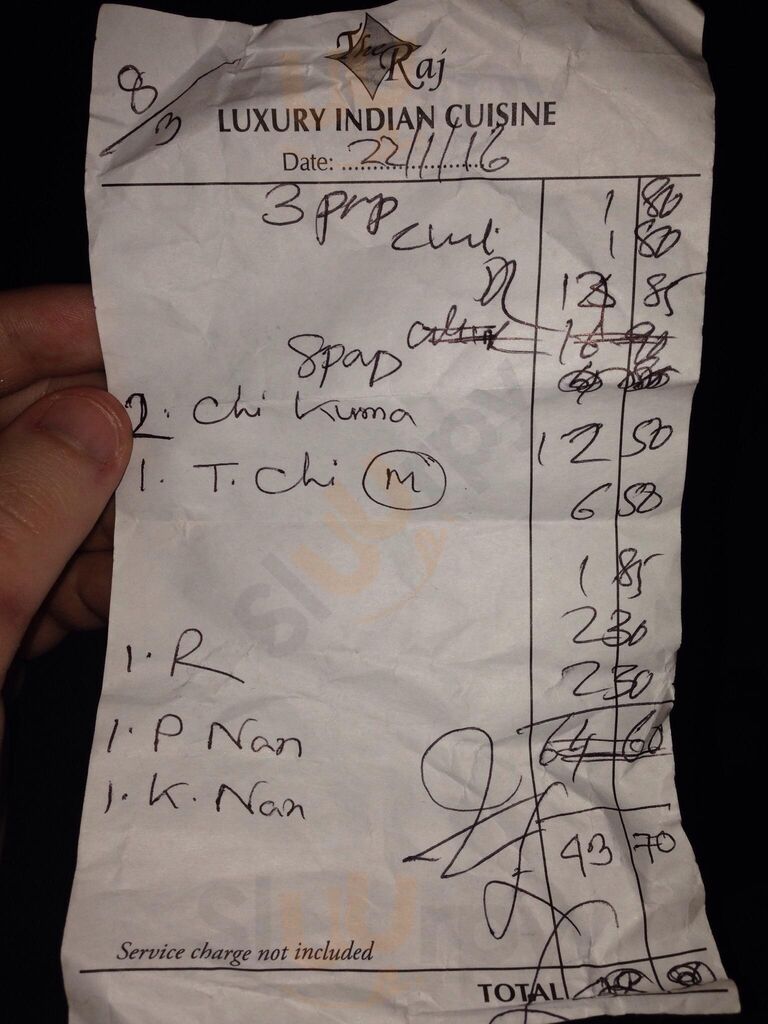 8/3
The Raj
LUXURY INDIAN CUISINE
Date: 22/1/16
3 pap 1 80
Chut. 1 80
D 85
8 pap
2. Chi Kurma 12 50
1. T. Chi (M) 6 50
1 85
1. R 2 30
1. P Nan 2 30
1. K. Nan 64 60
43 70
Service charge not included
TOTAL
sluurpy